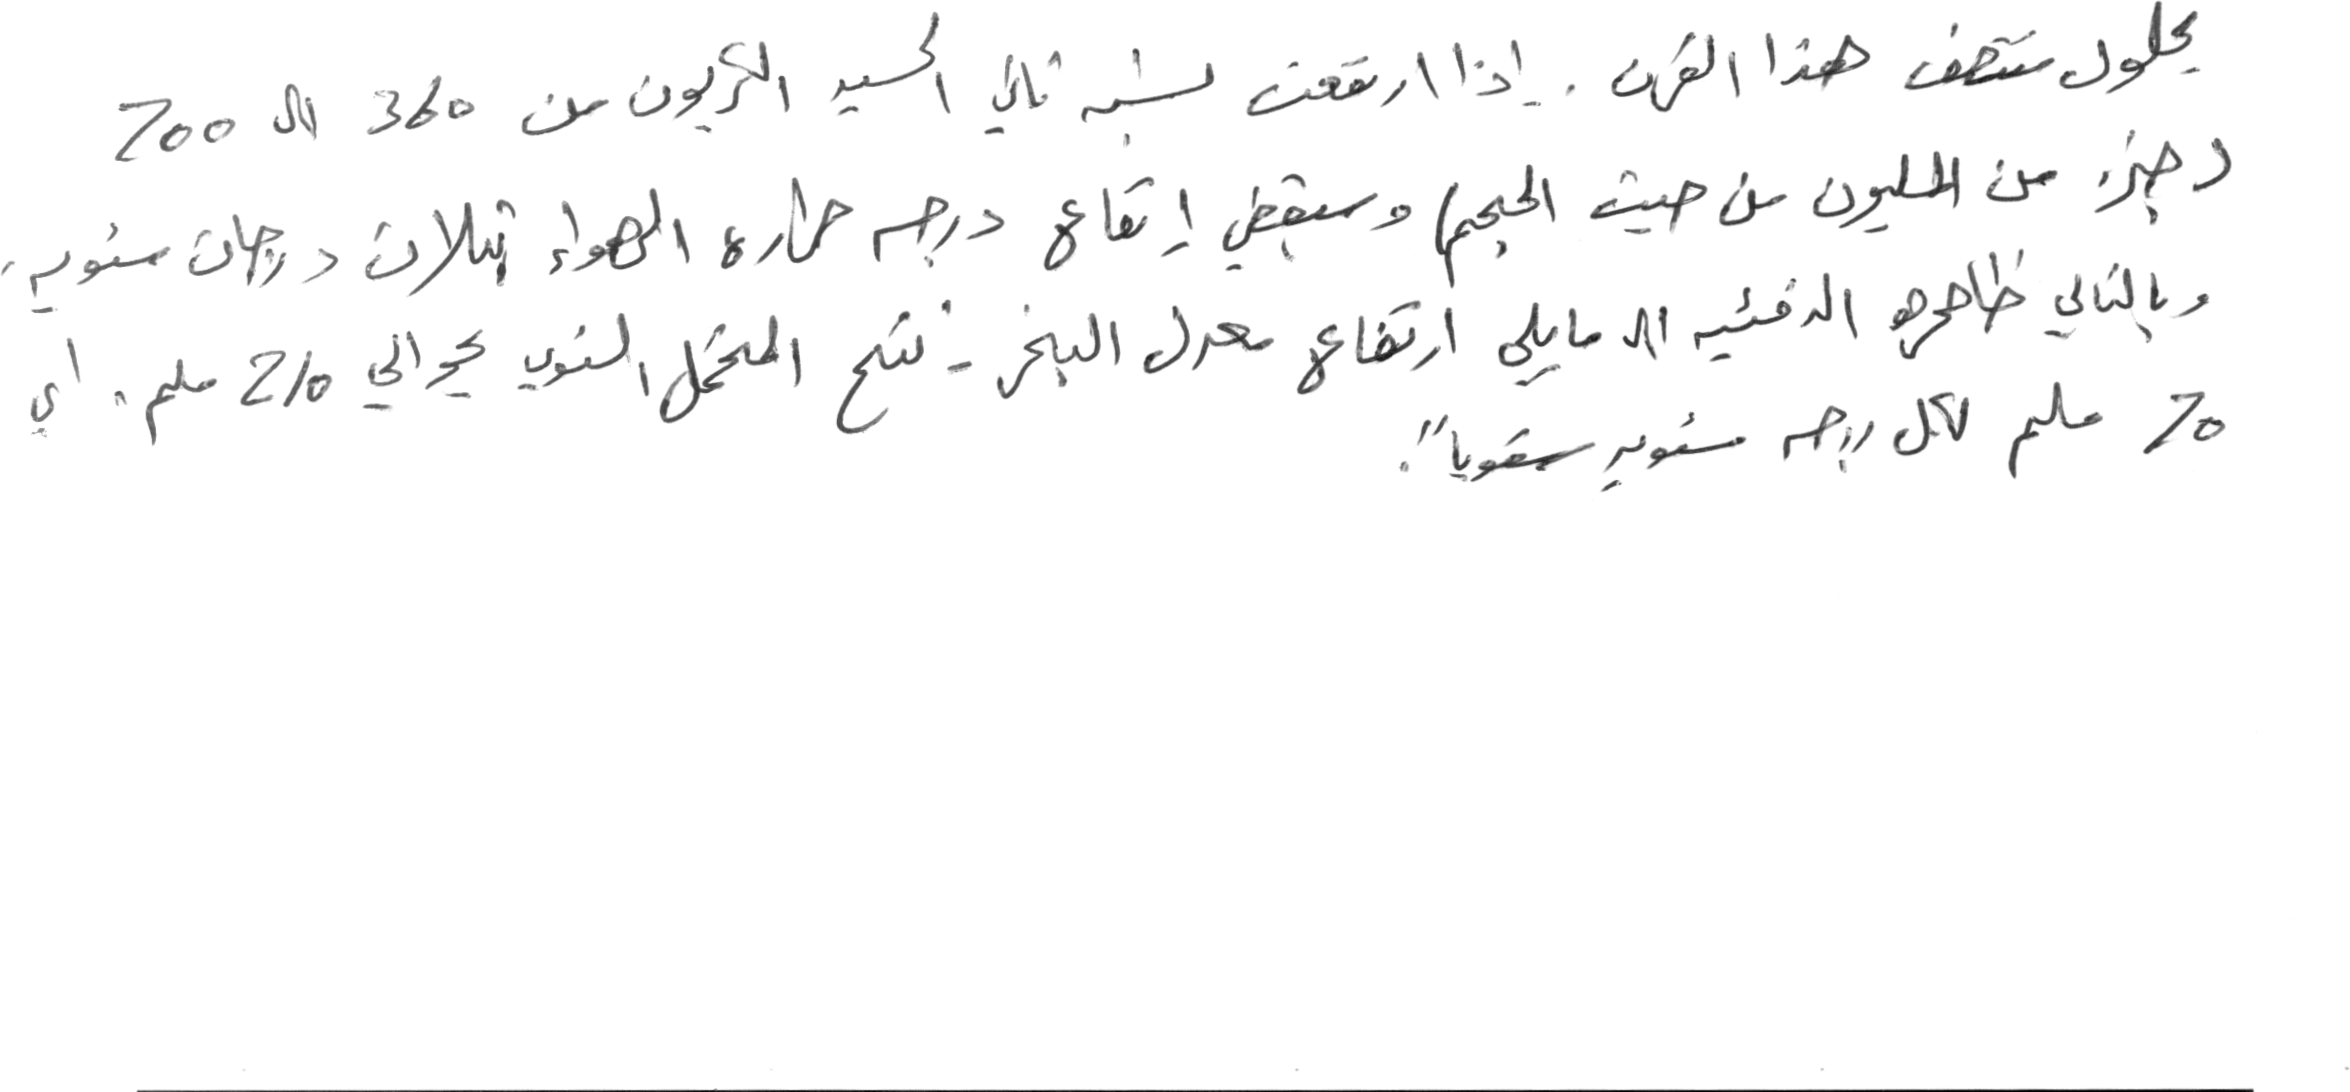 بحلول منتصف هذا القرن. إذا ارتفعت نسبه ثاني اكسيد الكربون من 360 الى 700
(جزء من المليون من حيث الحجم) وسيقضي ارتفاع درجه حراره الهواء بثلاث درجات مئويه،
وبالتالي ظاهره الدفيئيه الى مايلي ارتفاع معدل التبخر - نتح المحتمل السنوي بحوالي 210 ملم. أي
70 ملم لكل درجه مئويه سنويا".